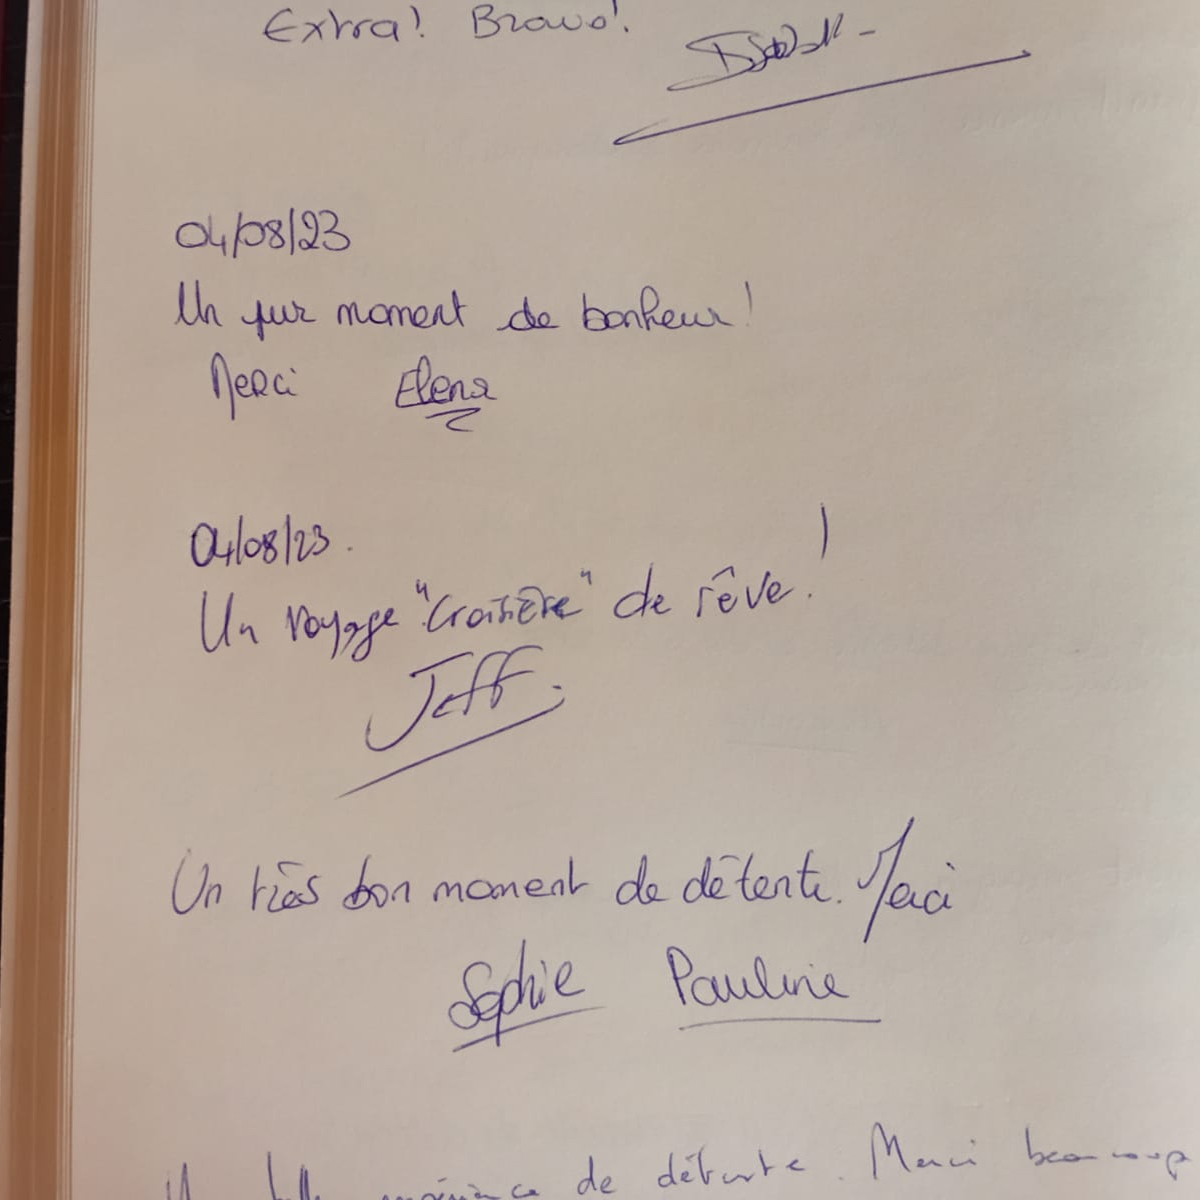 Extra! Bravo!
04/08/23
Un pur moment de bonheur!
Merci Elena
04/08/23.
Un voyage "Croisière" de rêve!
Jeff.
Un très bon moment de détente. Merci
Sophie Pauline
de détente. Merci beaucoup